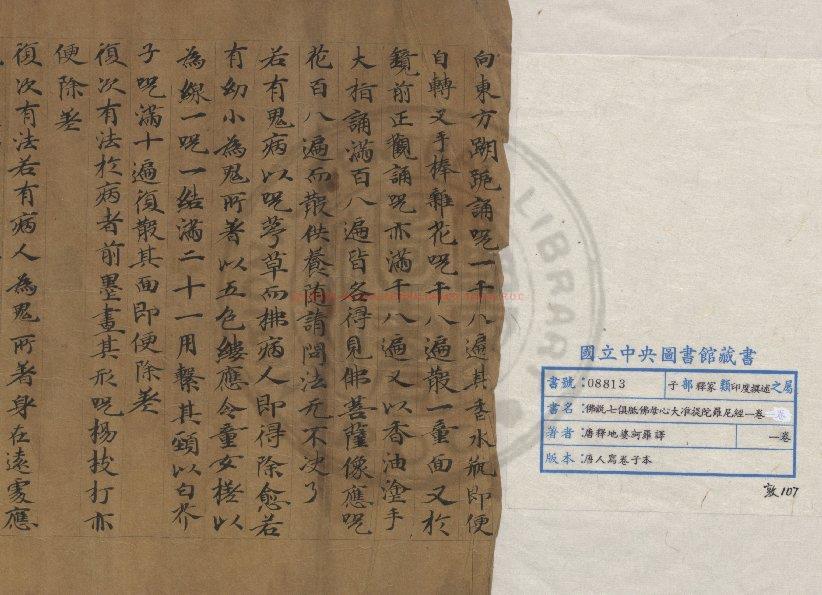 向東方䠒跪誦呪一千八遍其香水瓶即便
自轉又手捧雜花呪千八遍散一童面又於
鏡前正觀誦呪亦滿千八遍又以香油塗手
大指誦滿百八遍皆各得見佛菩薩像應呪
花百八遍而散供養随請問法无不决了
若有鬼病以呪茅草而拂病人即得除愈若
有幼小為鬼所著以五色縷應令童女搓以
為線一呪一結滿二十一用繫其頸以白芥
子呪滿十遍復散其面即便除差
復次有法於病者前墨畫其形呪楊枝打亦
便除差
復次有法若有病人為鬼所著身在遠處應
LIBRARY
國立中央圖書館藏書
書號:08813 子部釋家類印度撰述之屬
書名:佛説七俱胝佛母心大准提陀羅尼經一卷一卷
著者:唐釋地婆訶羅譯 一卷
版本:唐人寫卷子本
敦107